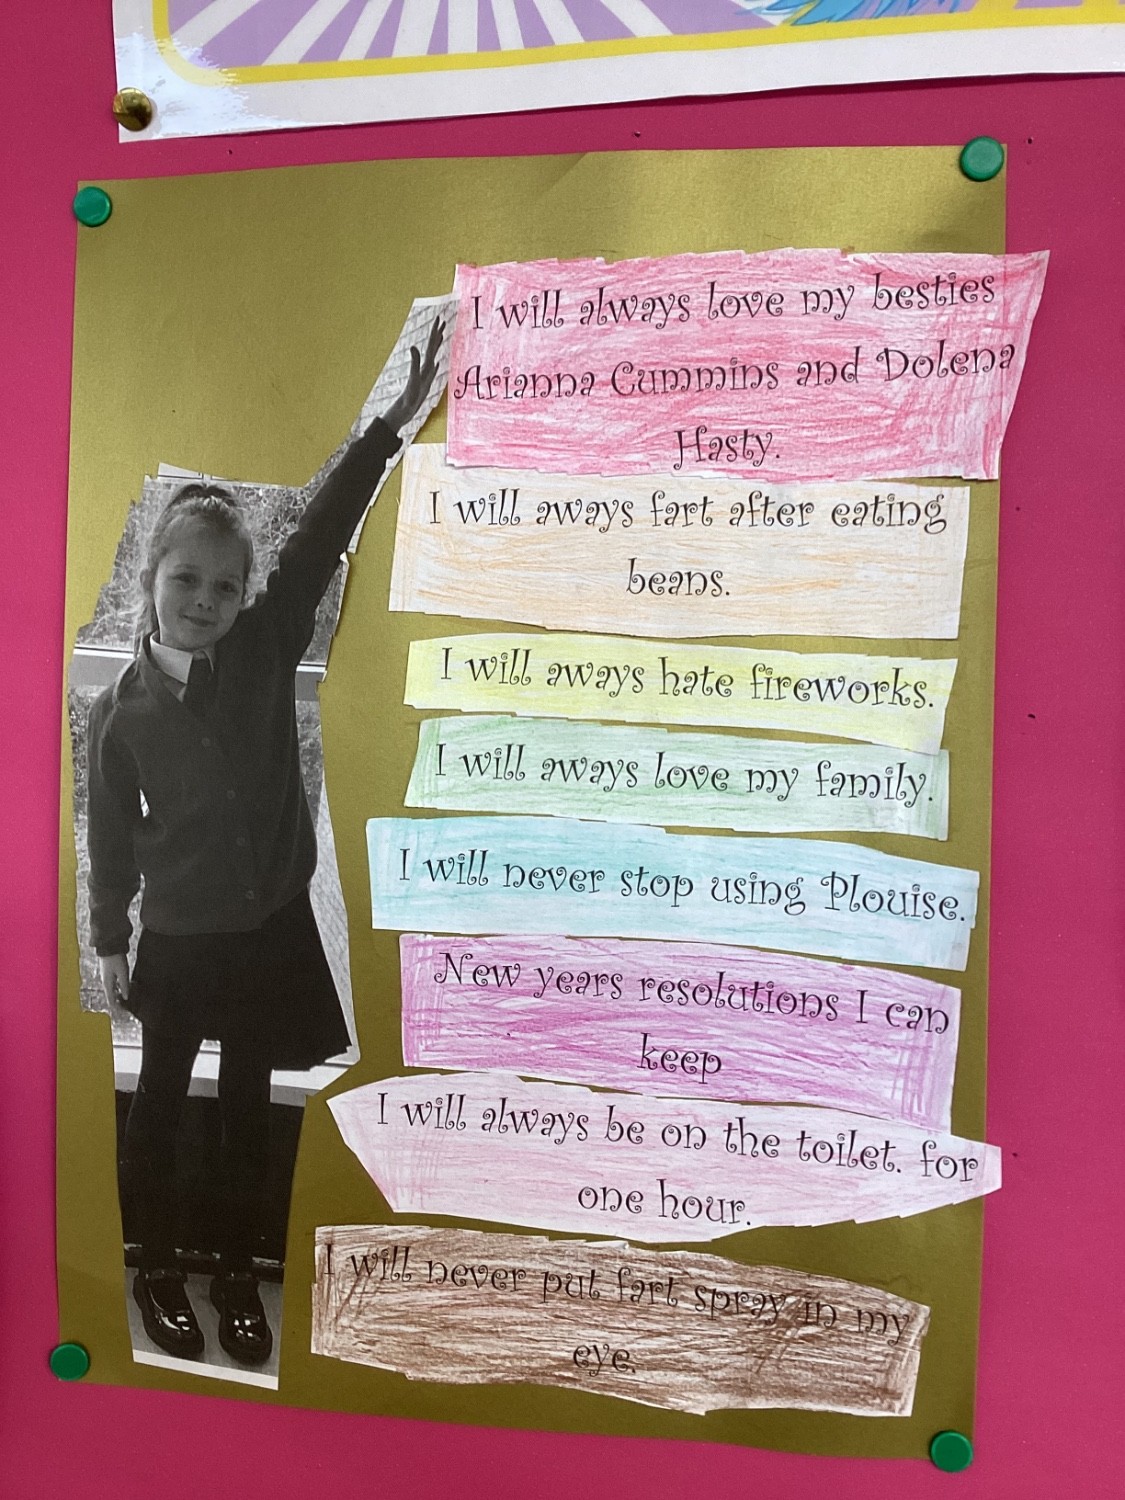 I will always love my besties
Arianna Cummins and Dolena
Hasty.
I will aways fart after eating
beans.
I will aways hate fireworks.
I will aways love my family.
I will never stop using Plouise.
New years resolutions I can
keep
I will always be on the toilet. for
one hour.
I will never put fart spray in my
eye.